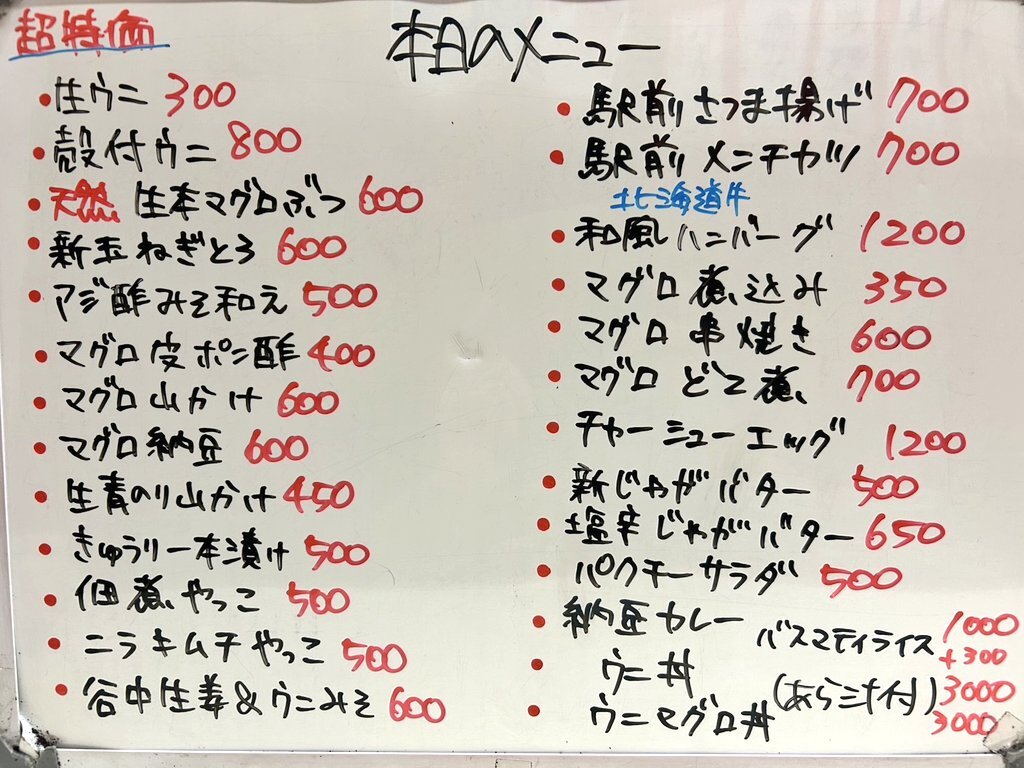 超特価
本日のメニュー
・生ウニ 300
・殻付ウニ 800
・天然 生本マグロぶつ 600
・新玉ねぎとろ 600
・アジ酢みそ和え 500
・マグロ皮ポン酢 400
・マグロ山かけ 600
・マグロ納豆 600
・生青のり山かけ 450
・きゅうり一本漬け 500
・佃煮やっこ 500
・ニラキムチやっこ 500
・谷中生姜&ウニみそ 600
・駅前さつま揚げ 700
・駅前メンチカツ 700
北海道牛
・和風ハンバーグ 1200
・マグロ煮込み 350
・マグロ串焼き 600
・マグロどて煮 700
・チャーシューエッグ 1200
・新じゃがバター 500
・塩辛じゃがバター 650
・パクチーサラダ 500
・納豆カレー 1000
バスマティライス +300
・ウニ丼 (あら汁付) 3000
・ウニマグロ丼 3000